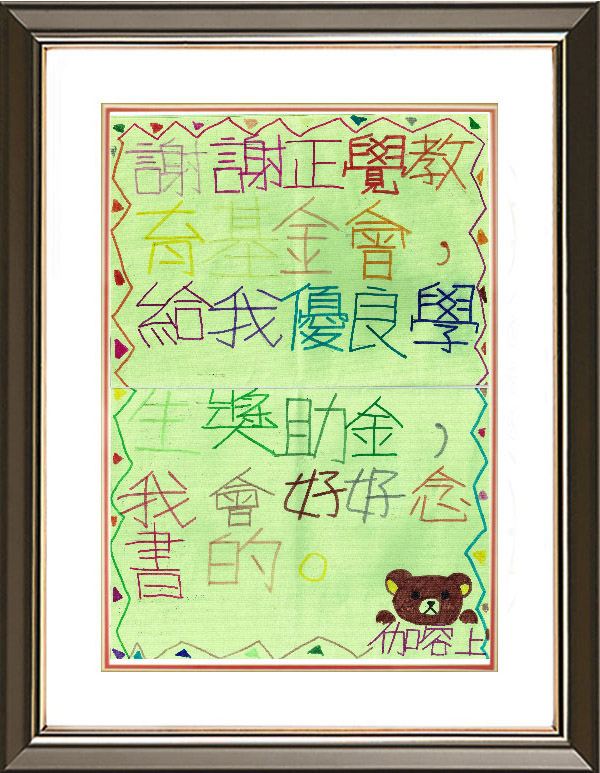 謝謝正覺教
育基金會，
給我優良學
生獎助金，
我會好好念
書的。
伽容上